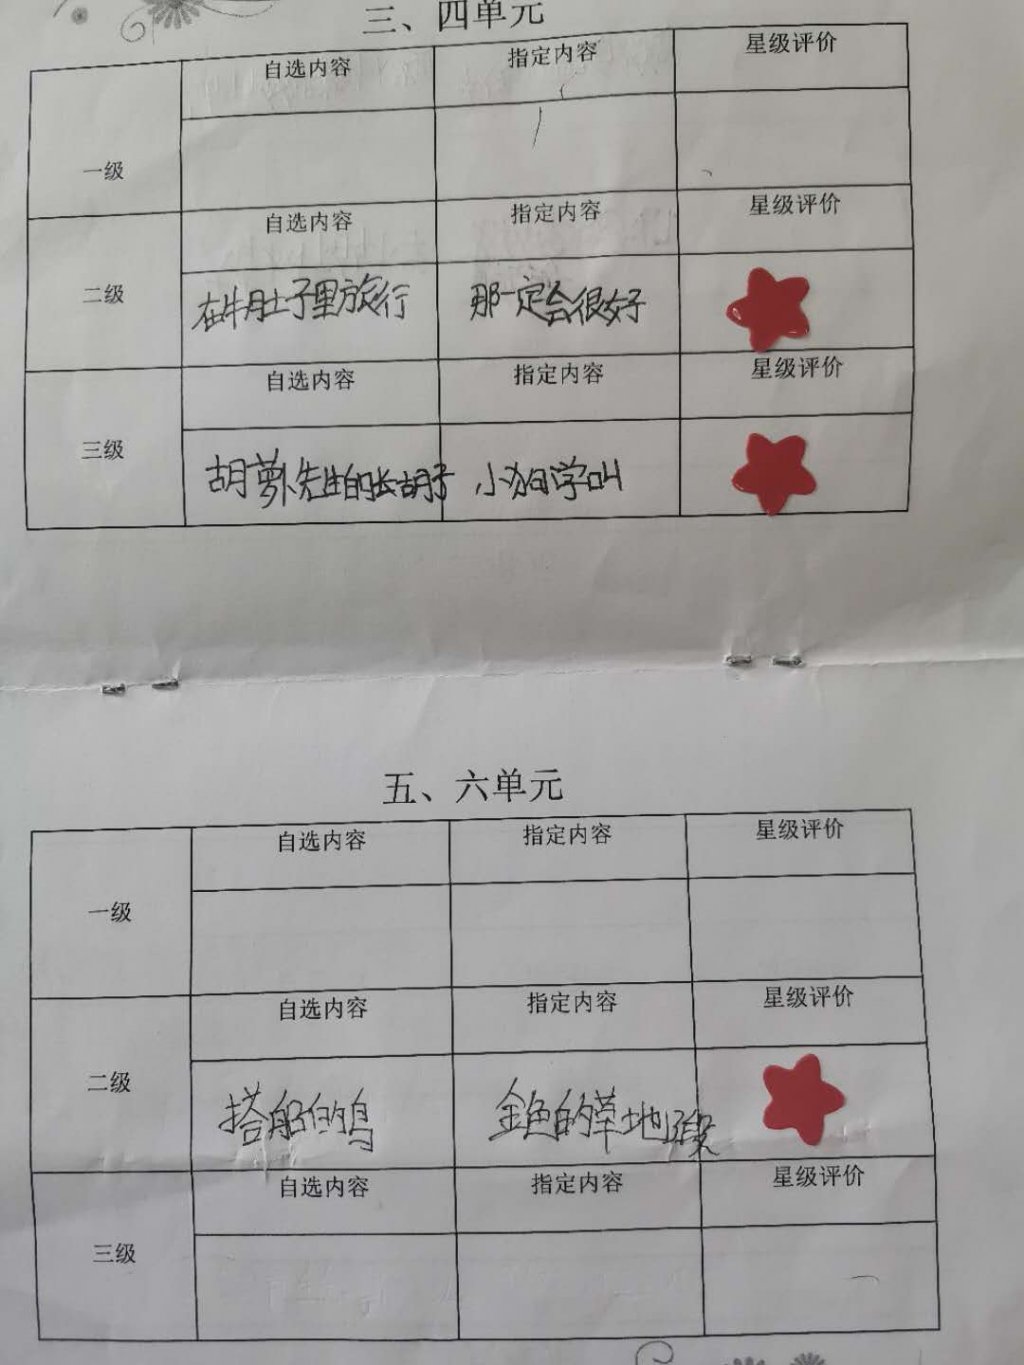 三、四单元
自选内容 指定内容 星级评价
一级
自选内容 指定内容 星级评价
二级 在牛肚子里旅行 那一定会很好
自选内容 指定内容 星级评价
三级 胡萝卜先生的长胡子 小狗学叫
五、六单元
自选内容 指定内容 星级评价
一级
自选内容 指定内容 星级评价
二级 搭船的鸟 金色的草地2段
自选内容 指定内容 星级评价
三级